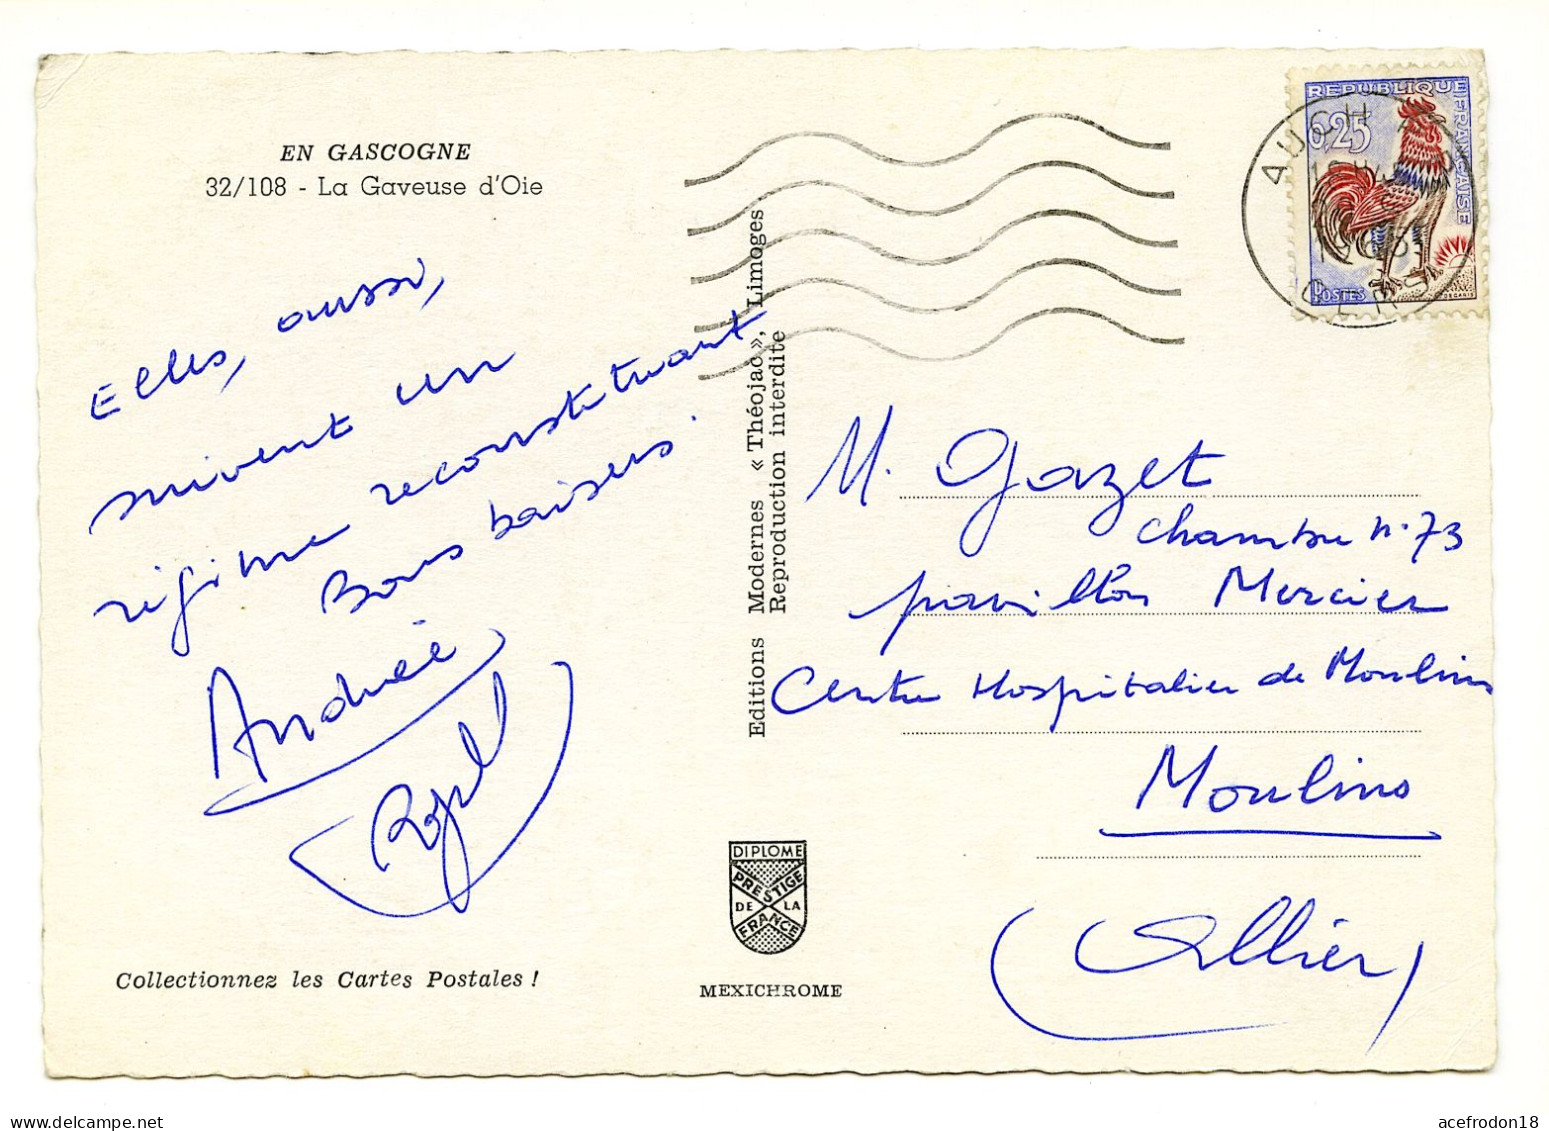 EN GASCOGNE
32/108 - La Gaveuse d'Oie
Elles, aussi,
suivent un
régime reconstituant
Bons baisers.
Andrée
Editions Modernes « Théojac », Limoges
Reproduction interdite
REPUBLIQUE FRANÇAISE
0,25
POSTES
DECARIS
AUCH
GERS
M. Gazet
chambre n. 73
pavillon Mercier
Centre Hospitalier de Moulins
Moulins
(Allier)
DIPLOME
PRESTIGE
DE LA
FRANCE
MEXICHROME
Collectionnez les Cartes Postales !
acefrodon18